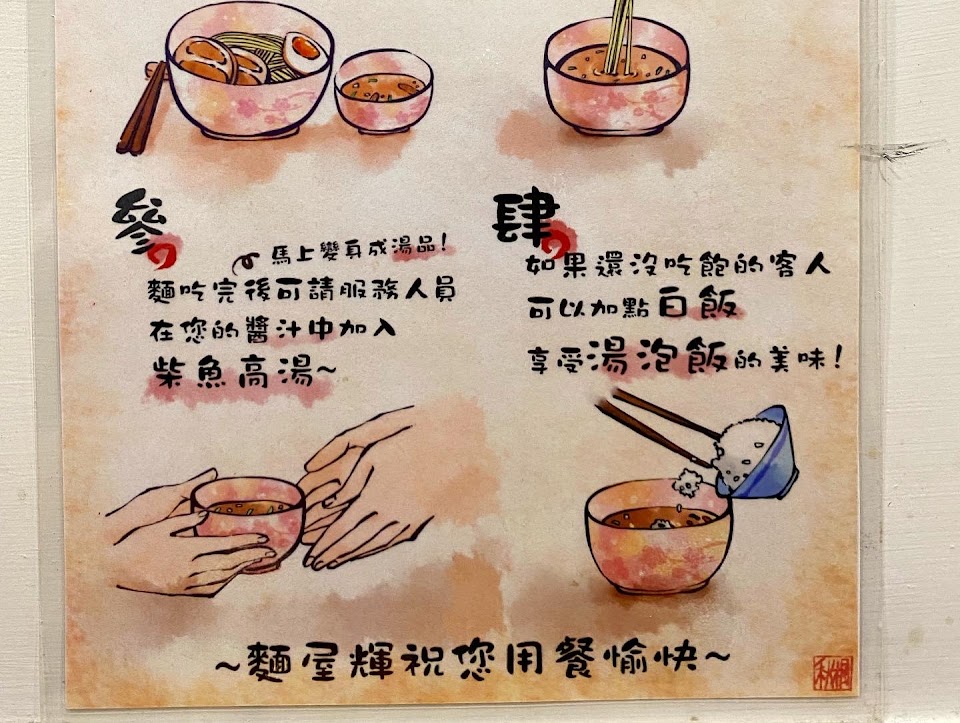 參の
馬上變身成湯品!
麵吃完後可請服務人員
在您的醬汁中加入
柴魚高湯~
肆の
如果還沒吃飽的客人
可以加點白飯
享受湯泡飯的美味!
~麵屋輝祝您用餐愉快~